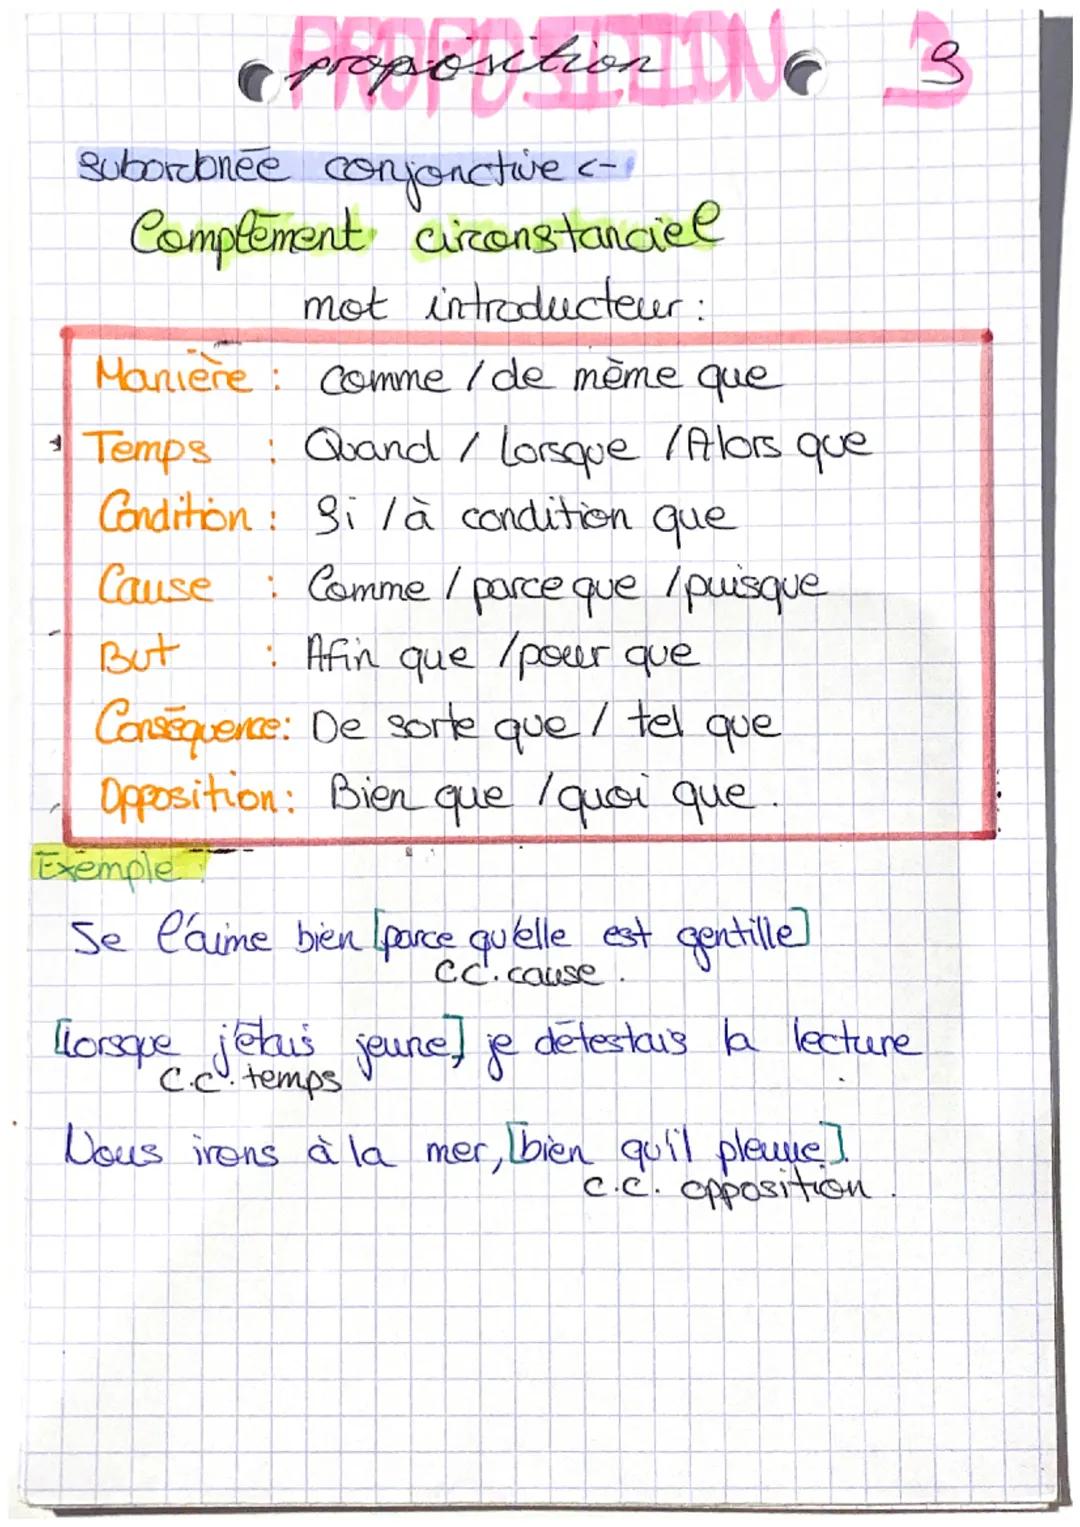 PROPOSITION 3
proposition 3
subordonnée conjonctive <-
Complément circonstanciel
mot introducteur :
Manière : comme / de même que
Temps : Quand / Lorsque / Alors que
Condition : Si / à condition que
Cause : Comme / parce que / puisque
But : Afin que / pour que
Conséquence : De sorte que / tel que
Opposition : Bien que / quoi que.
Exemple :
Je l'aime bien [parce qu'elle est gentille]
C.C. cause.
[Lorsque j'étais jeune] je détestais la lecture
C.C. temps
Nous irons à la mer, [bien qu'il pleuve].
C.C. opposition.